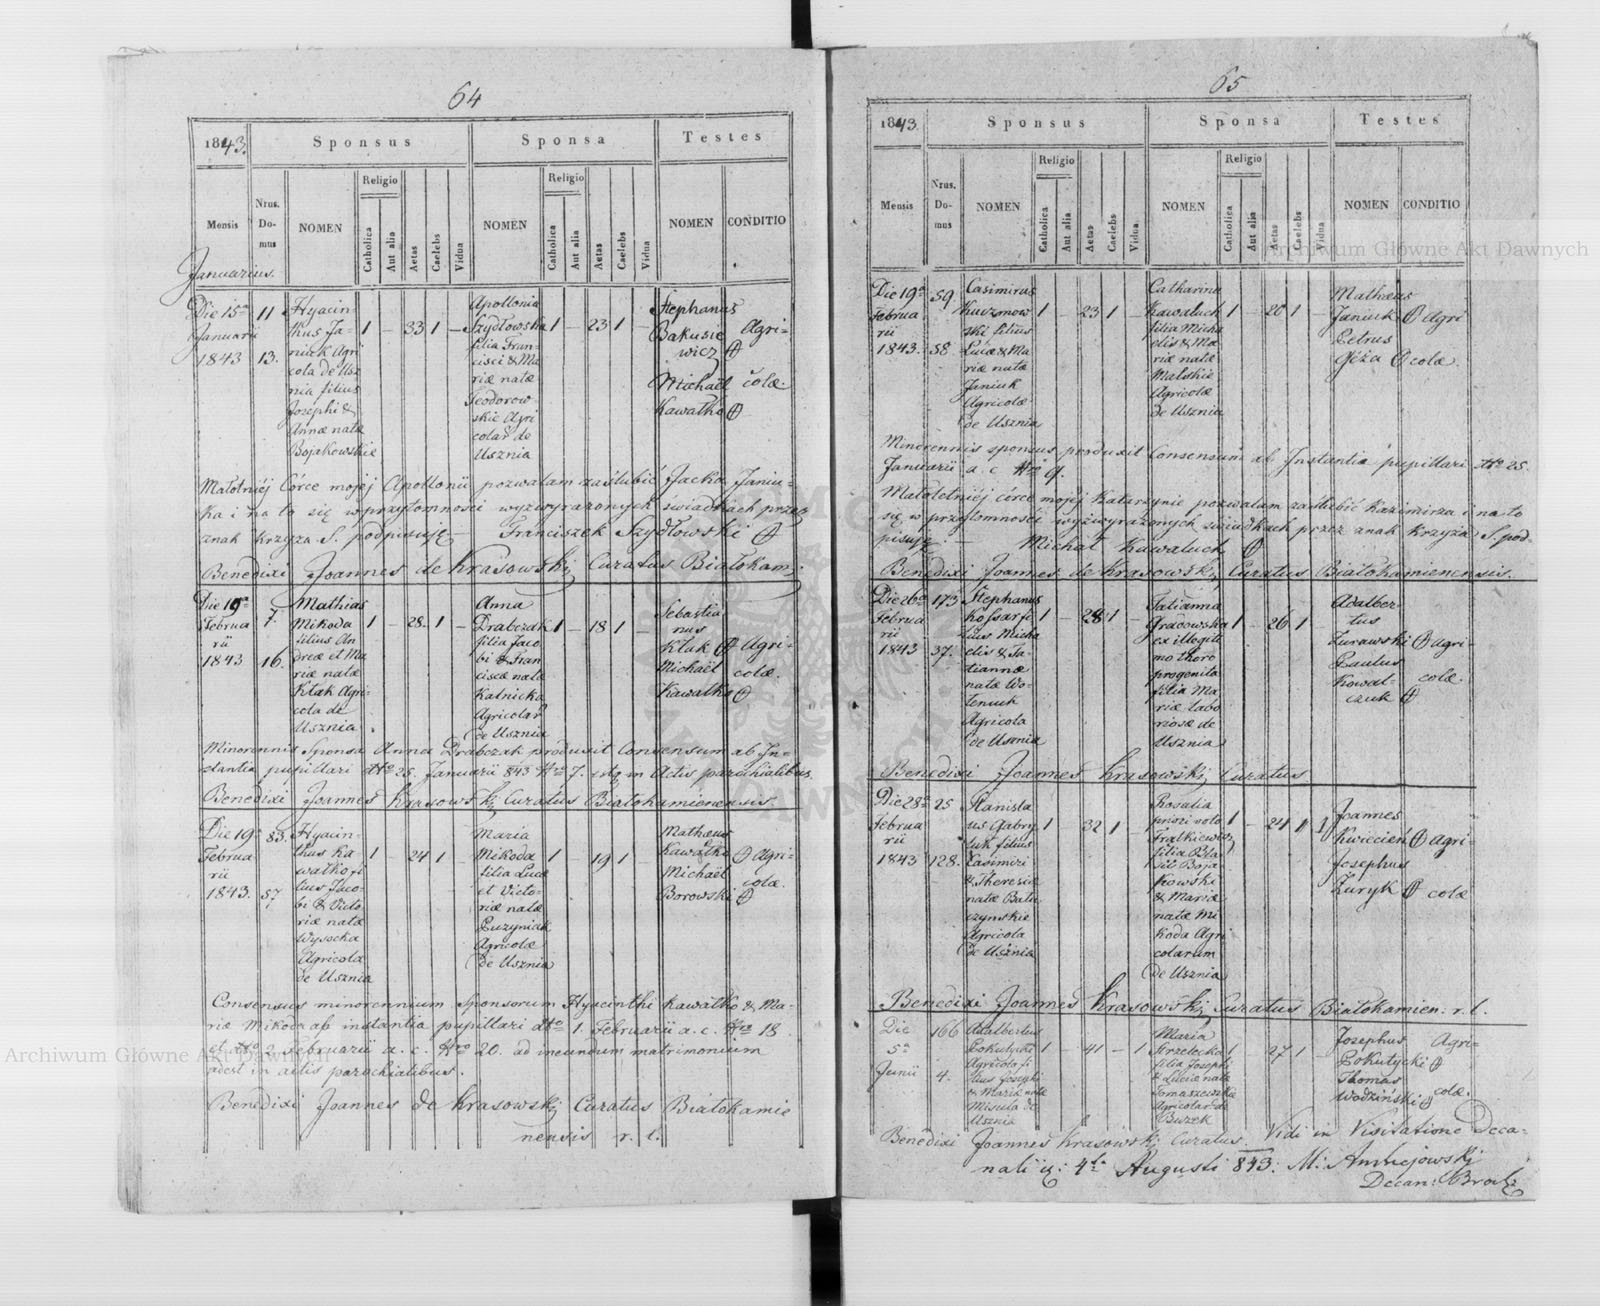 64
1843.
Sponsus
Sponsa
Testes
Mensis
Nrus. Do-mus
NOMEN
Religio
Catholica
Aut alia
Aetas
Caelebs
Vidua
NOMEN
Religio
Catholica
Aut alia
Aetas
Caelebs
Vidua
NOMEN
CONDITIO
Januarius.
Die 15ta
Januarii
1843
11
13.
Hyacin-
thus Ja-
niuk Agri
cola de Usz
nia filius
Josephi &
Annæ natæ
Bojakowskie
1 – 33 1 –
Apollonia
Szydłowska
filia Fran-
cisci & Ma
riæ natæ
Teodorow-
skie Agri
colar de
Usznia
1 – 23 1 –
Stephanus
Bakusie
wicz
Michaël
Kawałko
Agri-
colæ.
Małotniéj Córce mojéj Apollonii pozwalam zaślubić Jacka Janiu-
ka i na to się w przytomności wyzwyrażonych świadkach przez
znak krzyża S. podpisuję – Franciszek Szydłowski
Benedixi Joannes de Krasowskj Curatus Białokam:
Die 19a
Februa
rii
1843
7.
16.
Mathias
Mikoda
filius An
dreæ et Ma
riæ natæ
Kłak Agri-
cola de
Usznia
1 – 28 1 –
Anna
Drabczak
filia Jaco
bi & Fran
ciscæ natæ
Kalnicka
Agricolar
de Usznia
1 – 18 1 –
Sebastia
nus
Kłak
Michaël
Kawałko
Agri-
colæ.
Minorennis Sponsa Anna Drabczak produxit Consensum ab In-
stantia pupillari dto 25. Januarii 843 Nro 7. estq in Actis parochialibus
Benedixi Joannes Krasowskj Curatus Białokamienensis.
Die 19a
Februa
rii
1843.
83.
57
Hyacin-
thus Ka
wałko fi
lius Jaco-
bi & Victo
riæ natæ
Wysocka
Agricola
de Usznia
1 – 24 1 –
Maria
Mikoda
filia Lucæ
et Victo-
riæ natæ
Luzyniak
Agricolæ
de Usznia
1 – 19 1 –
Mathæus
Kawałko
Michaël
Borowski
Agri-
colæ.
Consensus minorennium Sponsorum Hyacinthi Kawałko & Ma-
riæ Mikoda ab instantia pupillari dto 1. Februarii a. c. Nro 18.
et dto 2 Februarii a. c. Nro 20. ad ineundum matrimonium
adest in actis parochialibus.
Benedixi Joannes de Krasowskj Curatus Białokamie
nensis r. l.
65
1843.
Sponsus
Sponsa
Testes
Mensis
Nrus. Do-mus
NOMEN
Religio
Catholica
Aut alia
Aetas
Caelebs
Vidua
NOMEN
Religio
Catholica
Aut alia
Aetas
Caelebs
Vidua
NOMEN
CONDITIO
Die 19a
Februa
rii
1843.
59
58.
Casimirus
Kuzmow
ski filius
Lucæ & Ma
riæ natæ
Janiuk
Agricolæ
de Usznia
1 – 23 1 –
Catharina
Kawaluch
filia Micha
elis & Ma
riæ natæ
Malskie
Agricolæ
de Usznia
1 – 20 1 –
Mathæus
Janiuk
Petrus
Géża
Agri
colæ.
Minorennis sponsus produxit Consensum ab Instantia pupillari dto 25.
Januarii a. c Nro 9.
Małoletniéj córce mojéj Katarzynie pozwalam zaślubić Kazimirza i na to
się w przytomności wyżwyrażonych świadkach przez znak krzyża S. pod-
pisuję – Michał Kawaluch
Benedixi Joannes de Krasowskj Curatus Białokamienensis.
Die 26a
Februa
rii
1843
173
37.
Stephanus
Kossar fi
lius Micha
elis & Ta-
tiannæ
natæ Wo-
leniuk
Agricola
de Usznia
1 – 28 1 –
Tatianna
Gracowska
ex illegiti
mo thoro
progenita
filia Ma
riæ labo
riosæ de
Usznia
1 – 26 1 –
Adalber-
tus
Żurawski
Paulus
Kowal-
czuk
Agri-
colæ.
Benedixi Joannes Krasowskj Curatus
Die 28a
Februa
rii
1843
25
128.
Stanisla
us Gabry
luk filius
Casimiri
& Theresiæ
natæ Batu
czynskie
Agricola
de Usznia
1 – 32 1
Rosalia
priori voto
Frątkiewicz
filia Bla
sii Boja
kowski
& Mariæ
natæ Mi
koda Agri
colarum
de Usznia
1 – 24 1 1
Joannes
Kwiecień
Josephus
Żuryk
Agri-
colæ
Benedixi Joannes Krasowskj Curatus Białokamien. r. l.
Die
5a
Junii
166
4.
Adalbertus
Pokutycki
Agricola fi
lius Josephi
& Mariæ natæ
Misula de
Usznia
1 – 41 – 1
Maria
Strzelecka
filia Josephi
& Luciæ natæ
Tomaszewska
Agricolar de
Buzek
1 – 27 1
Josephus
Pokutycki
Thomas
Wodziński
Agri-
colæ.
Benedixi Joannes Krasowskj Curatus. Vidi in Visitatione Deca-
nali 4ta Augusti 843:
Decan:
Archiwum Główne Akt Dawnych
Archiwum Główne Akt Dawnych